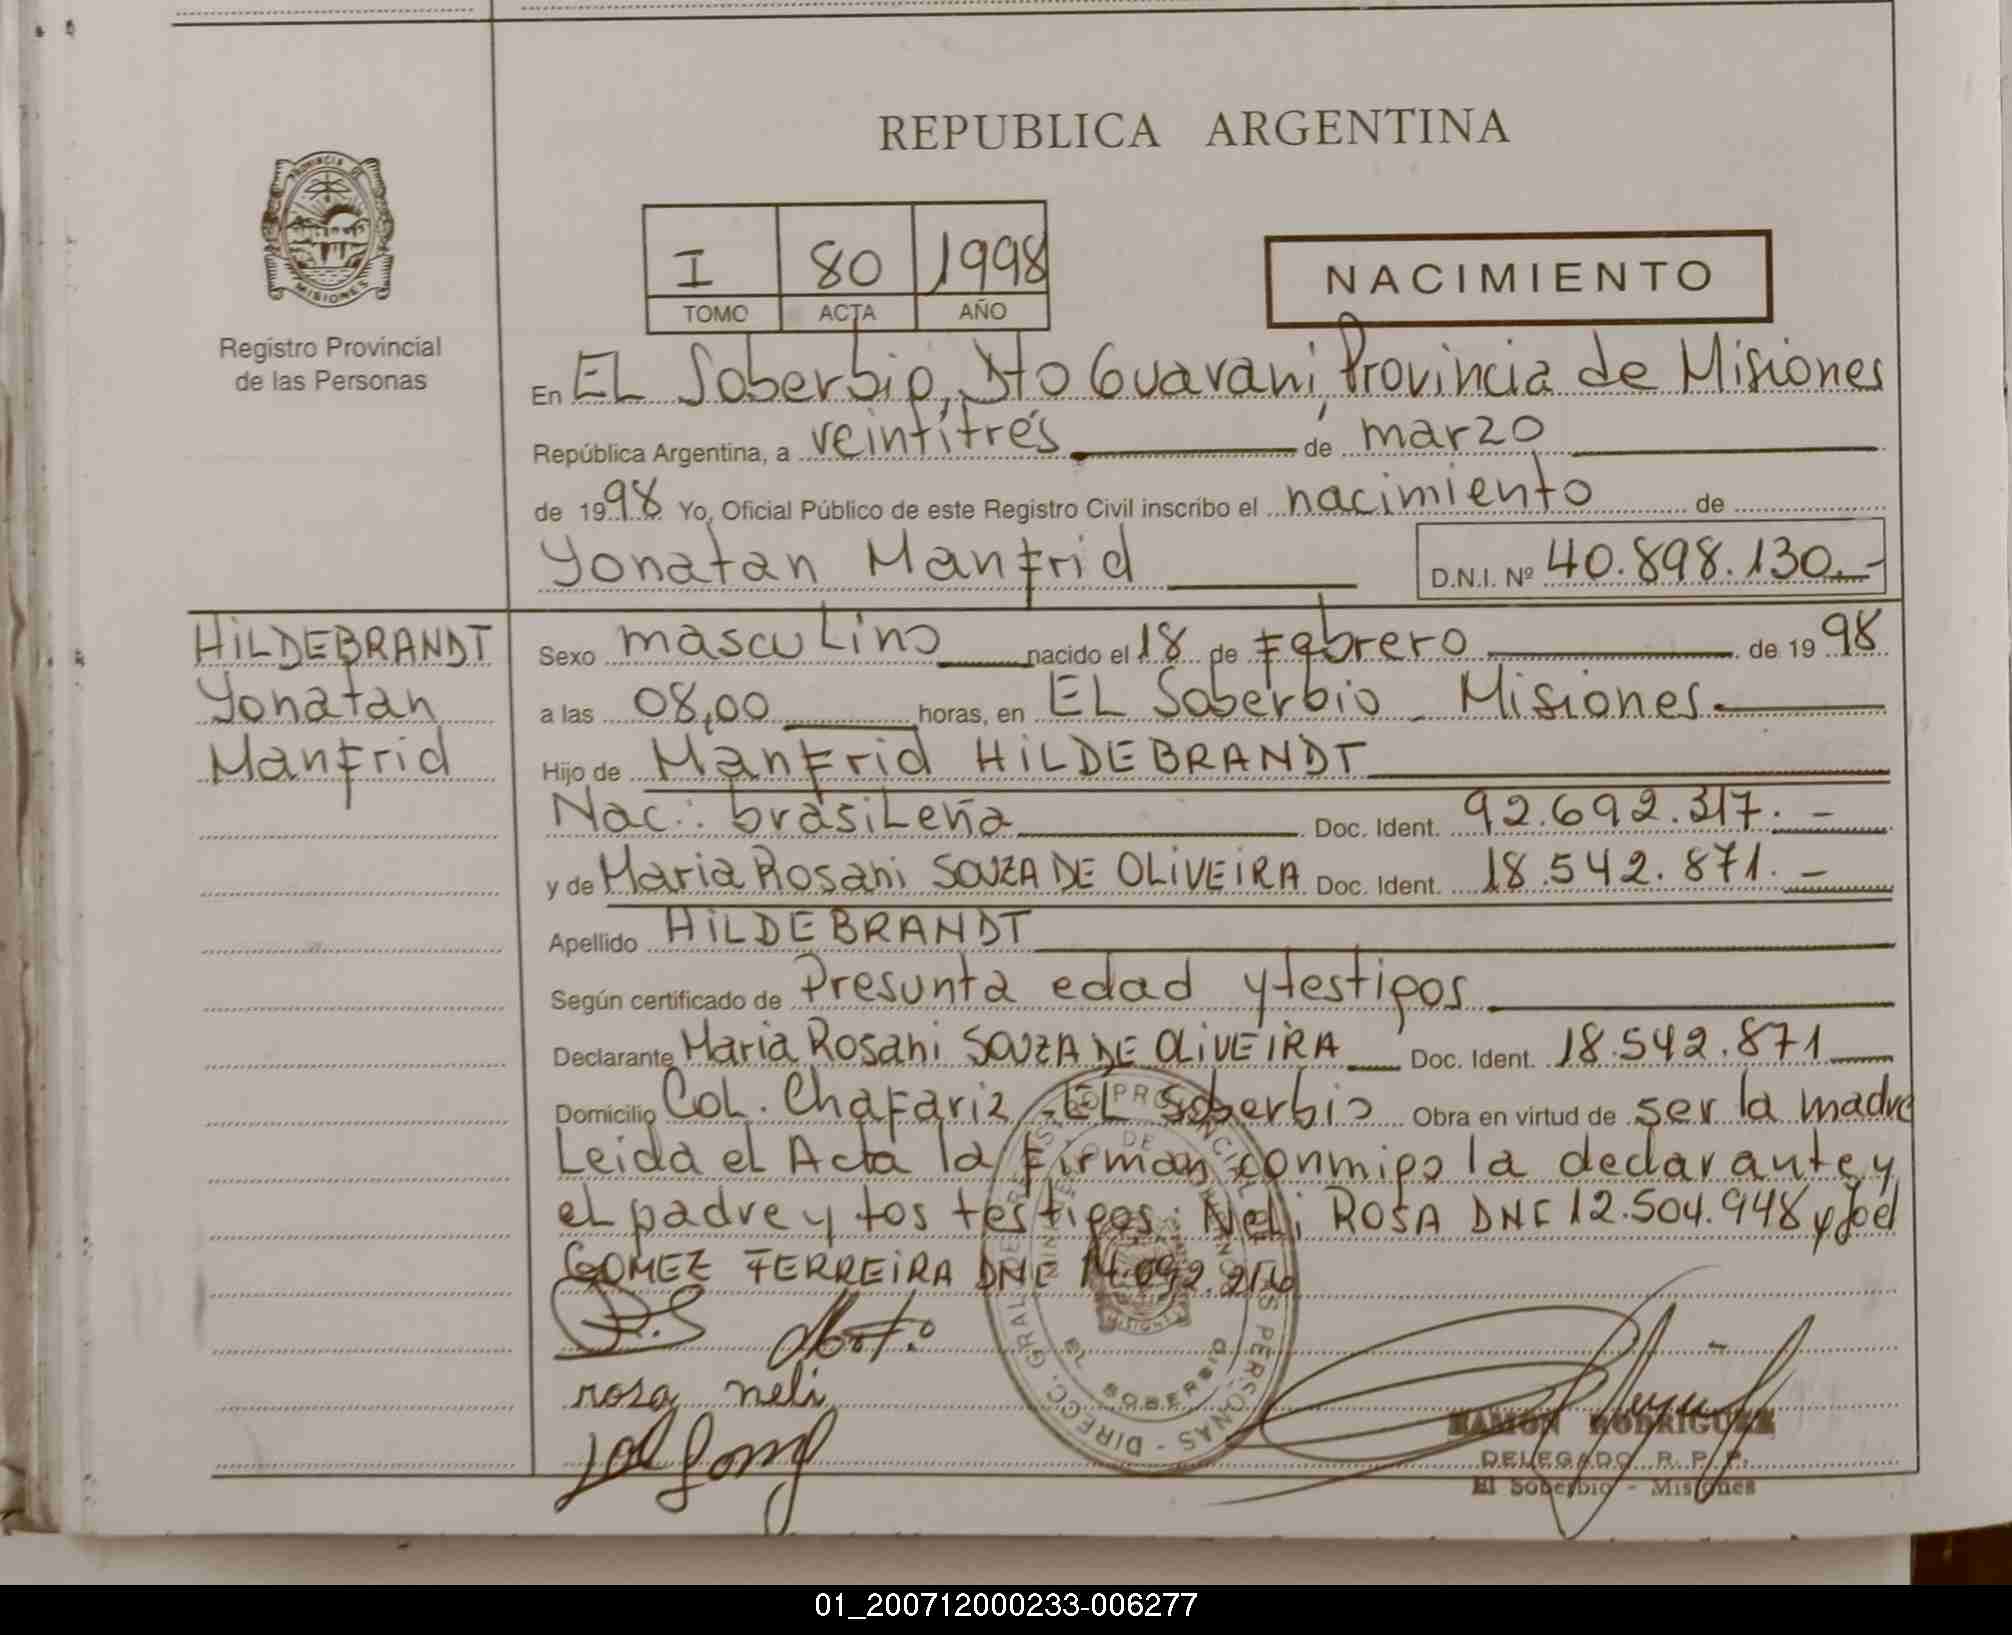 REPUBLICA ARGENTINA
PROVINCIA DE
MISIONES
Registro Provincial
de las Personas
I 80 1998
TOMO ACTA AÑO
NACIMIENTO
En EL Soberbio, Dto Guaraní, Provincia de Misiones
República Argentina, a veintitrés de marzo
de 1998 Yo, Oficial Público de este Registro Civil inscribo el nacimiento de
Yonatan Manfrid D.N.I. Nº 40.898.130.-
HILDEBRANDT
Yonatan
Manfrid
Sexo masculino nacido el 18 de Febrero de 1998
a las 08,00 horas, en EL Soberbio - Misiones.
Hijo de Manfrid HILDEBRANDT
Nac.: brasileña Doc. Ident. 92.692.317.-
y de Maria Rosani SOUZA DE OLIVEIRA Doc. Ident. 18.542.871.-
Apellido HILDEBRANDT
Según certificado de Presunta edad y testigos
Declarante Maria Rosani SOUZA DE OLIVEIRA Doc. Ident. 18.542.871
Domicilio Col. Chafariz - EL Soberbio Obra en virtud de ser la madre
Leida el Acta la firman conmigo la declarante y
el padre y los testigos: Neli ROSA DNI 12.504.948 y Joel
GOMEZ FERREIRA DNI
rosa neli
DIRECC. GRAL. DE REGISTRO PROVINCIAL DE LAS PERSONAS
EL SOBERBIO
MISIONES
RAMON RODRIGUEZ
DELEGADO R. P. P.
El Soberbio - Misiones
01_200712000233-006277